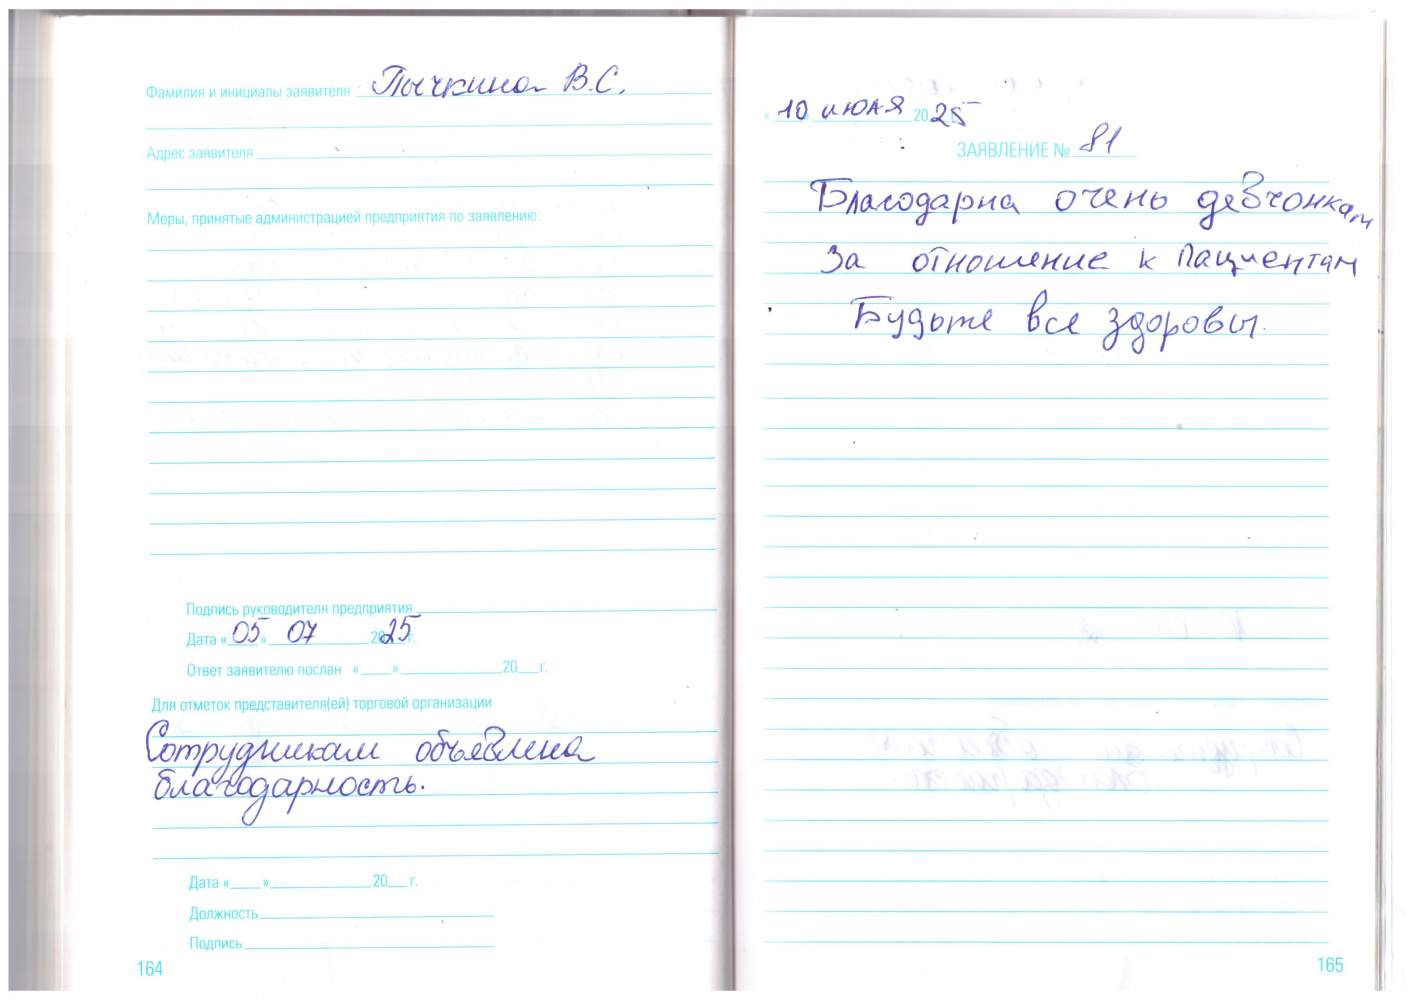 Фамилия и инициалы заявителя Пычкина В.С.
Адрес заявителя
Меры, принятые администрацией предприятия по заявлению:
Подпись руководителя предприятия
Дата «05» 07 2025 г.
Ответ заявителю послан «    »    20    г.
Для отметок представителя(ей) торговой организации
Сотрудникам объявлена
благодарность.
Дата «    »    20    г.
Должность
Подпись
164
«10 июля 2025
ЗАЯВЛЕНИЕ № 81
Благодарна очень девчонкам
за отношение к пациентам
Будьте все здоровы.
165